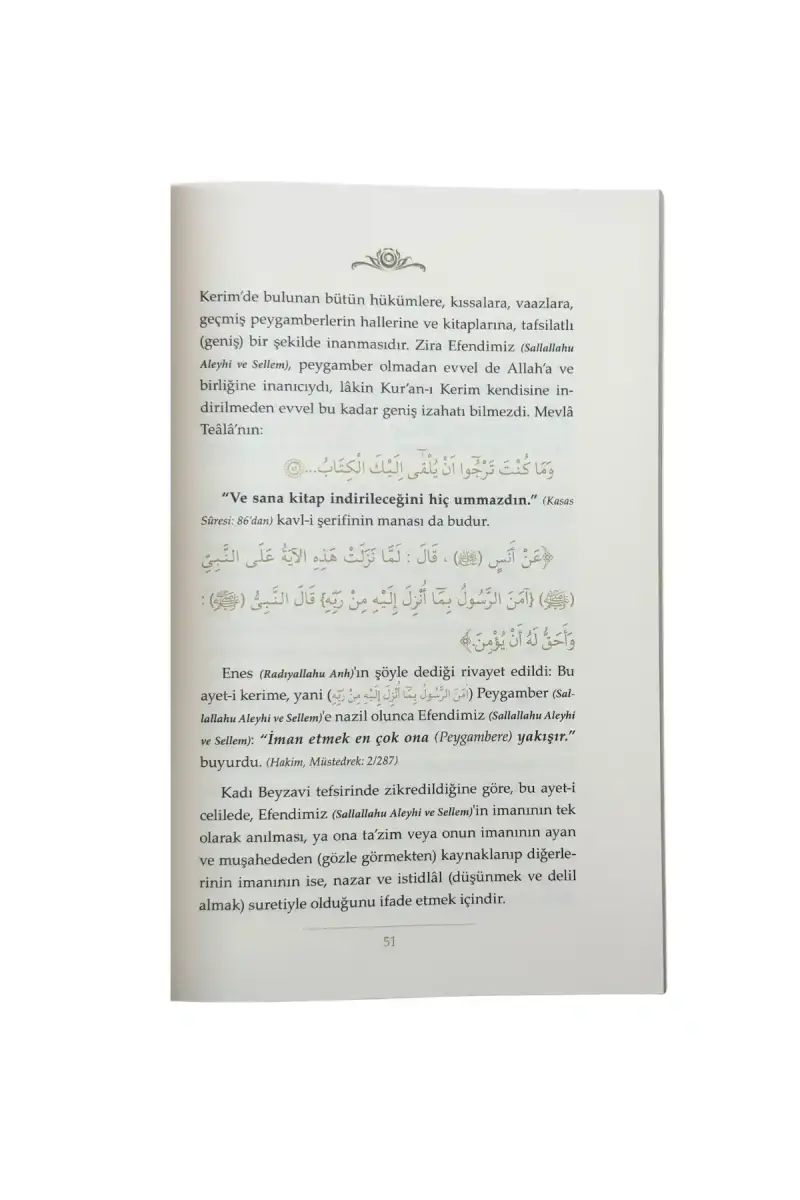 Kerim’de bulunan bütün hükümlere, kıssalara, vaazlara,
geçmiş peygamberlerin hallerine ve kitaplarına, tafsilatlı
(geniş) bir şekilde inanmasıdır. Zira Efendimiz (Sallallahu
Aleyhi ve Sellem), peygamber olmadan evvel de Allah’a ve
birliğine inanıcıydı, lâkin Kur’an-ı Kerim kendisine in-
dirilmeden evvel bu kadar geniş izahatı bilmezdi. Mevlâ
Teâlâ’nın:
وَمَا كُنْتَ تَرْجُٓوا اَنْ يُلْقٰٓى اِلَيْكَ الْكِتَابُ...﴿٨٦﴾
“Ve sana kitap indirileceğini hiç ummazdın.” (Kasas
Sûresi: 86’dan) kavl-i şerifinin manası da budur.
﴿عَنْ أَنَسٍ (ﷺ) ، قَالَ : لَمَّا نَزَلَتْ هَذِهِ الآيَةُ عَلَى النَّبِيِّ
(ﷺ) {آمَنَ الرَّسُولُ بِمَا أُنْزِلَ إِلَيْهِ مِنْ رَبِّهِ} قَالَ النَّبِيُّ (ﷺ) :
وَأَحَقُّ لَهُ أَنْ يُؤْمِنَ.﴾
Enes (Radıyallahu Anh)’ın şöyle dediği rivayet edildi: Bu
ayet-i kerime, yani (اٰمَنَ الرَّسُولُ بِمَٓا اُنْزِلَ اِلَيْهِ مِنْ رَبِّهِ) Peygamber (Sal-
lallahu Aleyhi ve Sellem)’e nazil olunca Efendimiz (Sallallahu Aleyhi
ve Sellem): “İman etmek en çok ona (Peygambere) yakışır.”
buyurdu. (Hakim, Müstedrek: 2/287)
Kadı Beyzavi tefsirinde zikredildiğine göre, bu ayet-i
celilede, Efendimiz (Sallallahu Aleyhi ve Sellem)’in imanının tek
olarak anılması, ya ona ta’zim veya onun imanının ayan
ve muşahededen (gözle görmekten) kaynaklanıp diğerle-
rinin imanının ise, nazar ve istidlâl (düşünmek ve delil
almak) suretiyle olduğunu ifade etmek içindir.
51